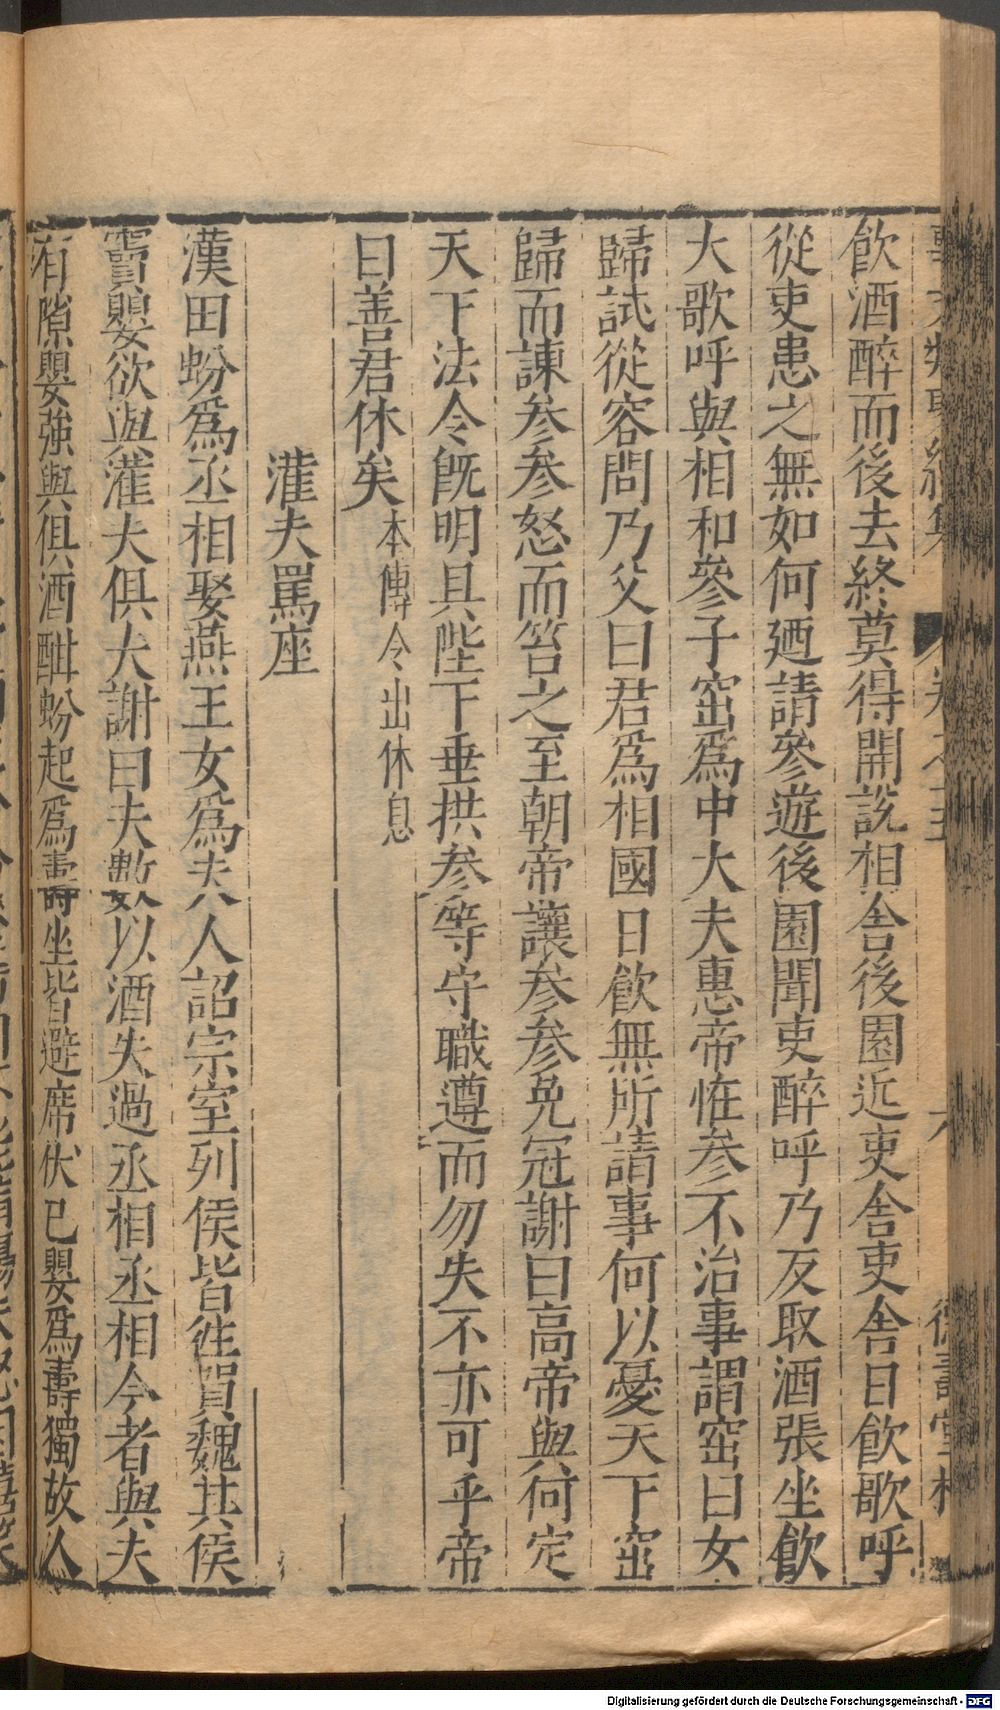 飲酒醉而後去終莫得開説相舍後園近吏舍吏舍日飲歌呼
從吏患之無如何廼請參遊後園聞吏醉呼乃反取酒張坐飲
大歌呼與相和參子窋爲中大夫惠帝恠参不治事謂窋曰女
歸試從容問乃父曰君爲相國日飲無所請事何以憂天下窋
歸而諫参参怒而笞之至朝帝讓参参免冠謝曰高帝與何定
天下法令旣明具陛下垂拱参等守職遵而勿失不亦可乎帝
曰善君休矣本傳令出休息
灌夫罵座
漢田蚡爲丞相娶燕王女爲夫人詔宗室列侯皆徃賀魏其侯
竇嬰欲與灌夫俱夫謝曰夫數以酒失過丞相丞相今者與夫
有隙嬰強與俱酒酣蚡起爲壽坐皆避席伏已嬰爲壽獨故人
Digitalisierung gefördert durch die Deutsche Forschungsgemeinschaft - DFG